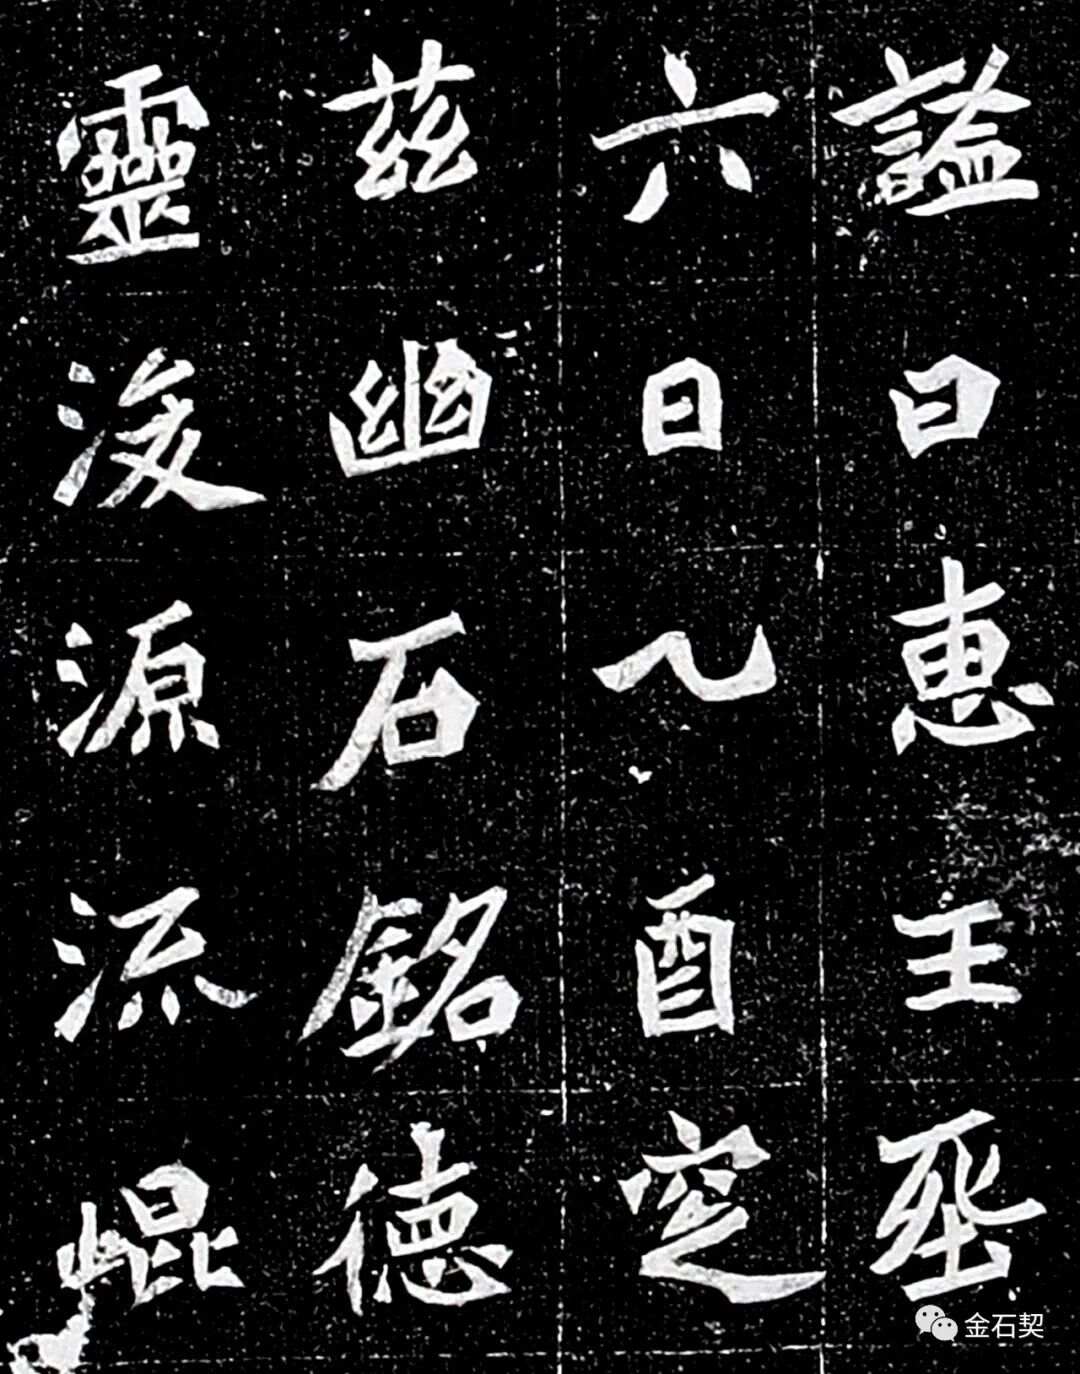 謚曰惠王粤
六日乙酉窆
兹幽石銘德
靈浚源流崐
金石契